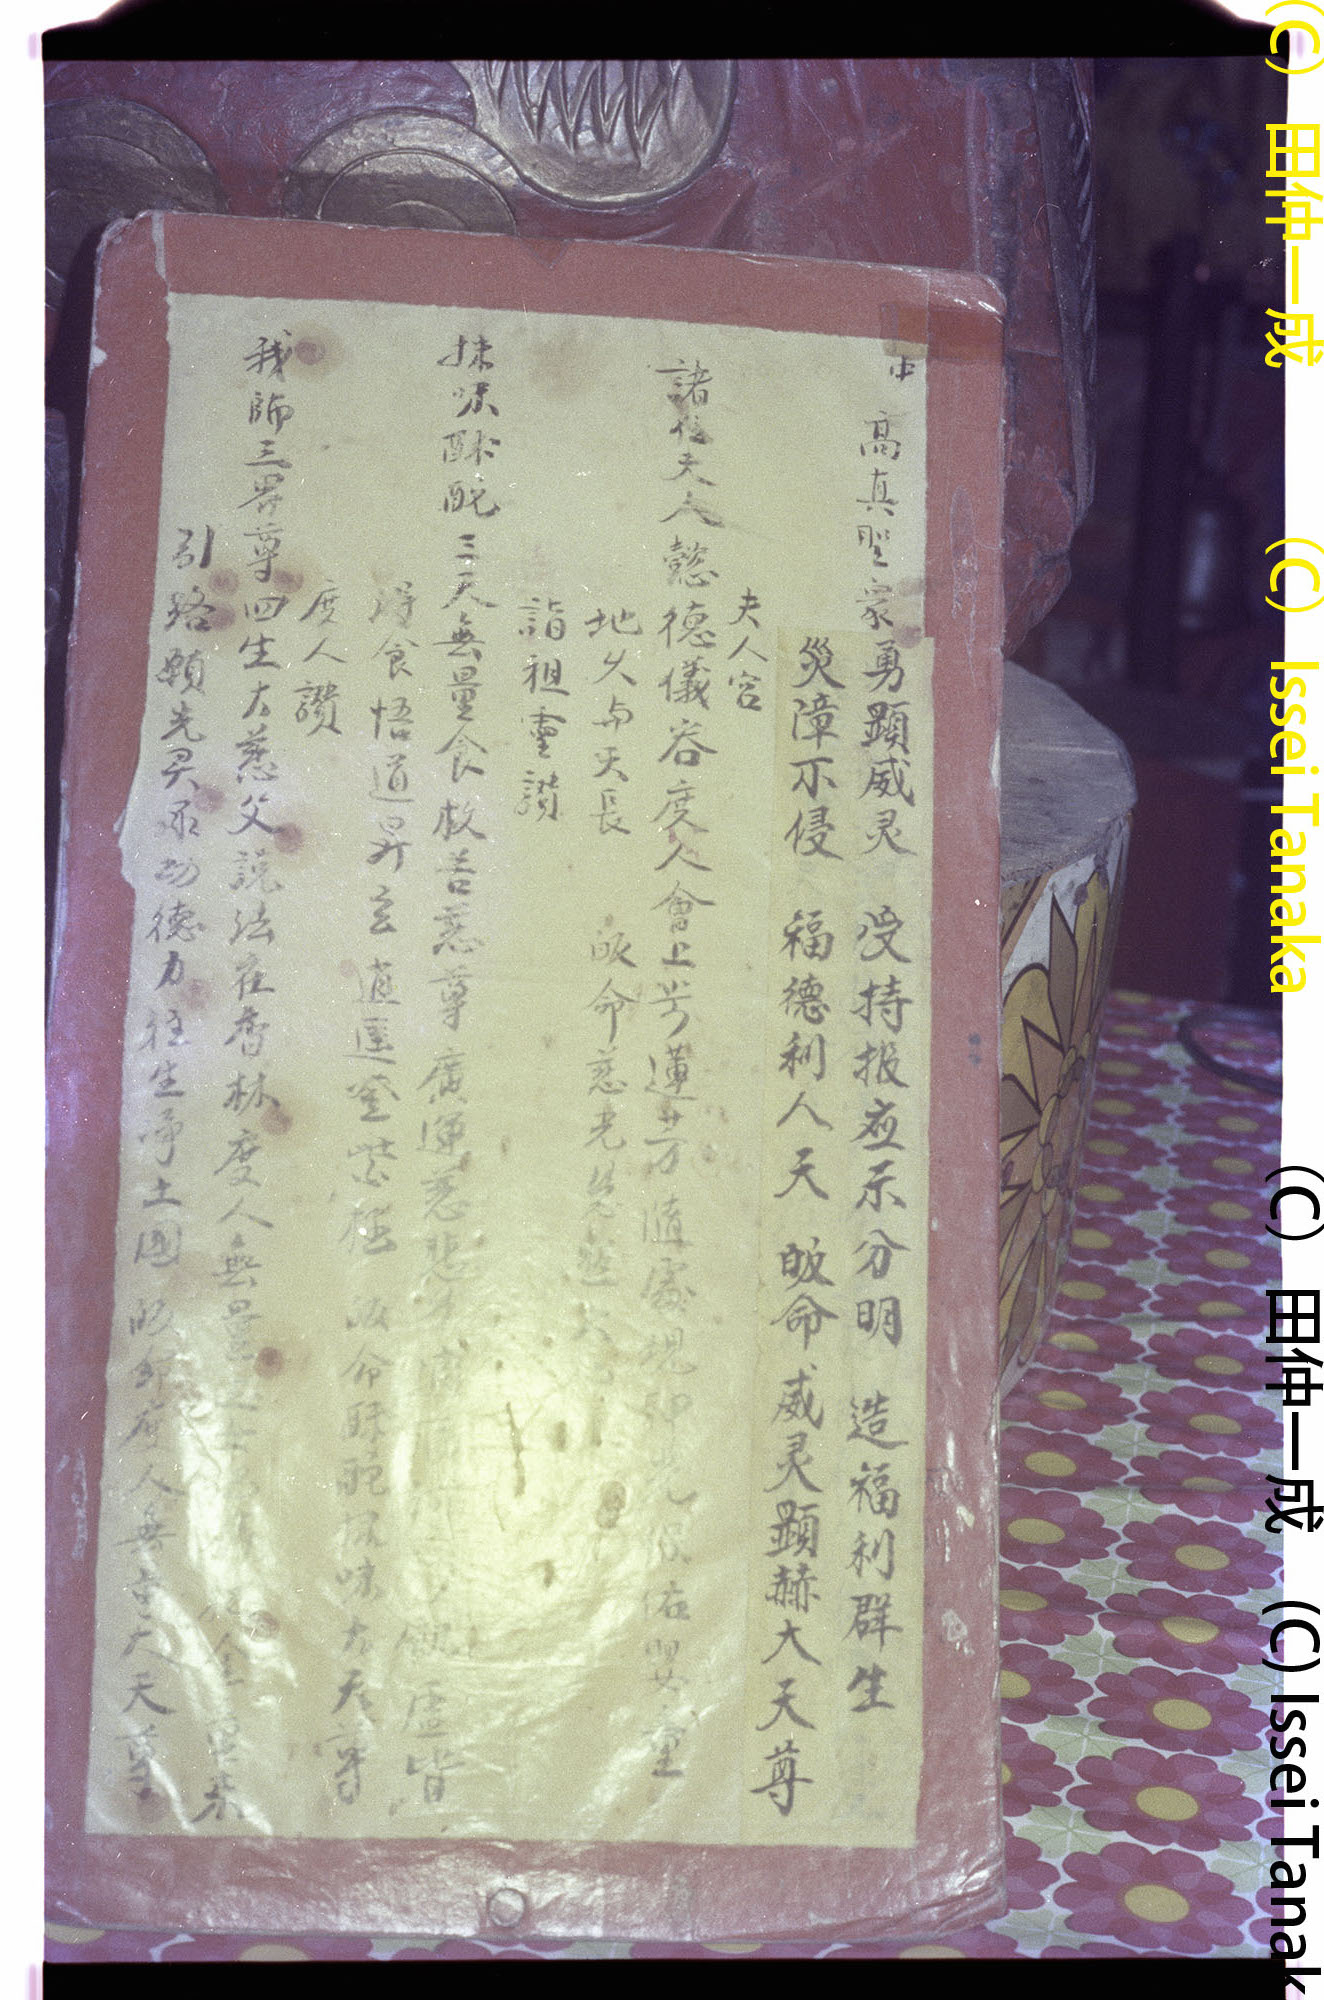 中
高真聖众勇顕威灵 受持报应示分明 造福利群生
災障不侵 福德利人天 皈命威灵顕赫大天尊
夫人宮
諸位夫人懿德儀容 度人會上步蓮 隨處現 佑嬰童
地久与天長 皈命慈光
詣祖靈讃
抹味酥酡三天無量食救苦慈尊廣運慈悲 皆
得食悟道昇玄 逍遥登紫極 皈命酥酡抹味大天尊
度人讃
我師三界尊四生大慈父説法在香林度人無量
引路願先灵承功德力往生凈土國 皈命度人無量大天尊
(C) 田仲一成 (C) Issei Tanaka
(C) 田仲一成 (C) Issei Tanak